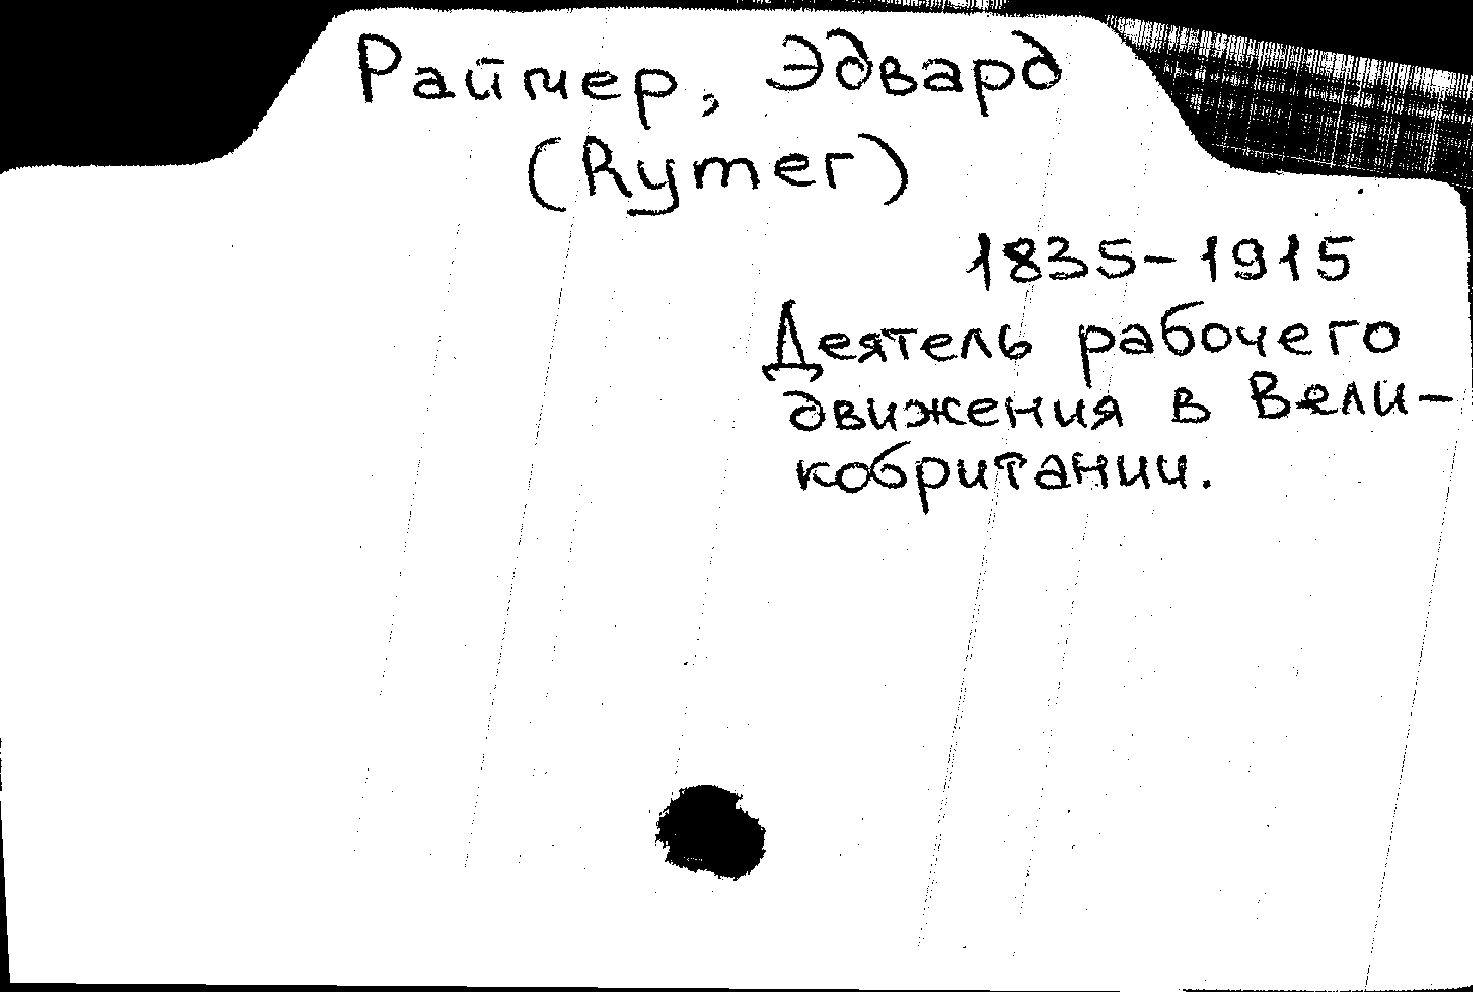 Раймер, Эдвард
(Rymer)
1835-1915
Деятель рабочего
движения в Вели-
кобритании.